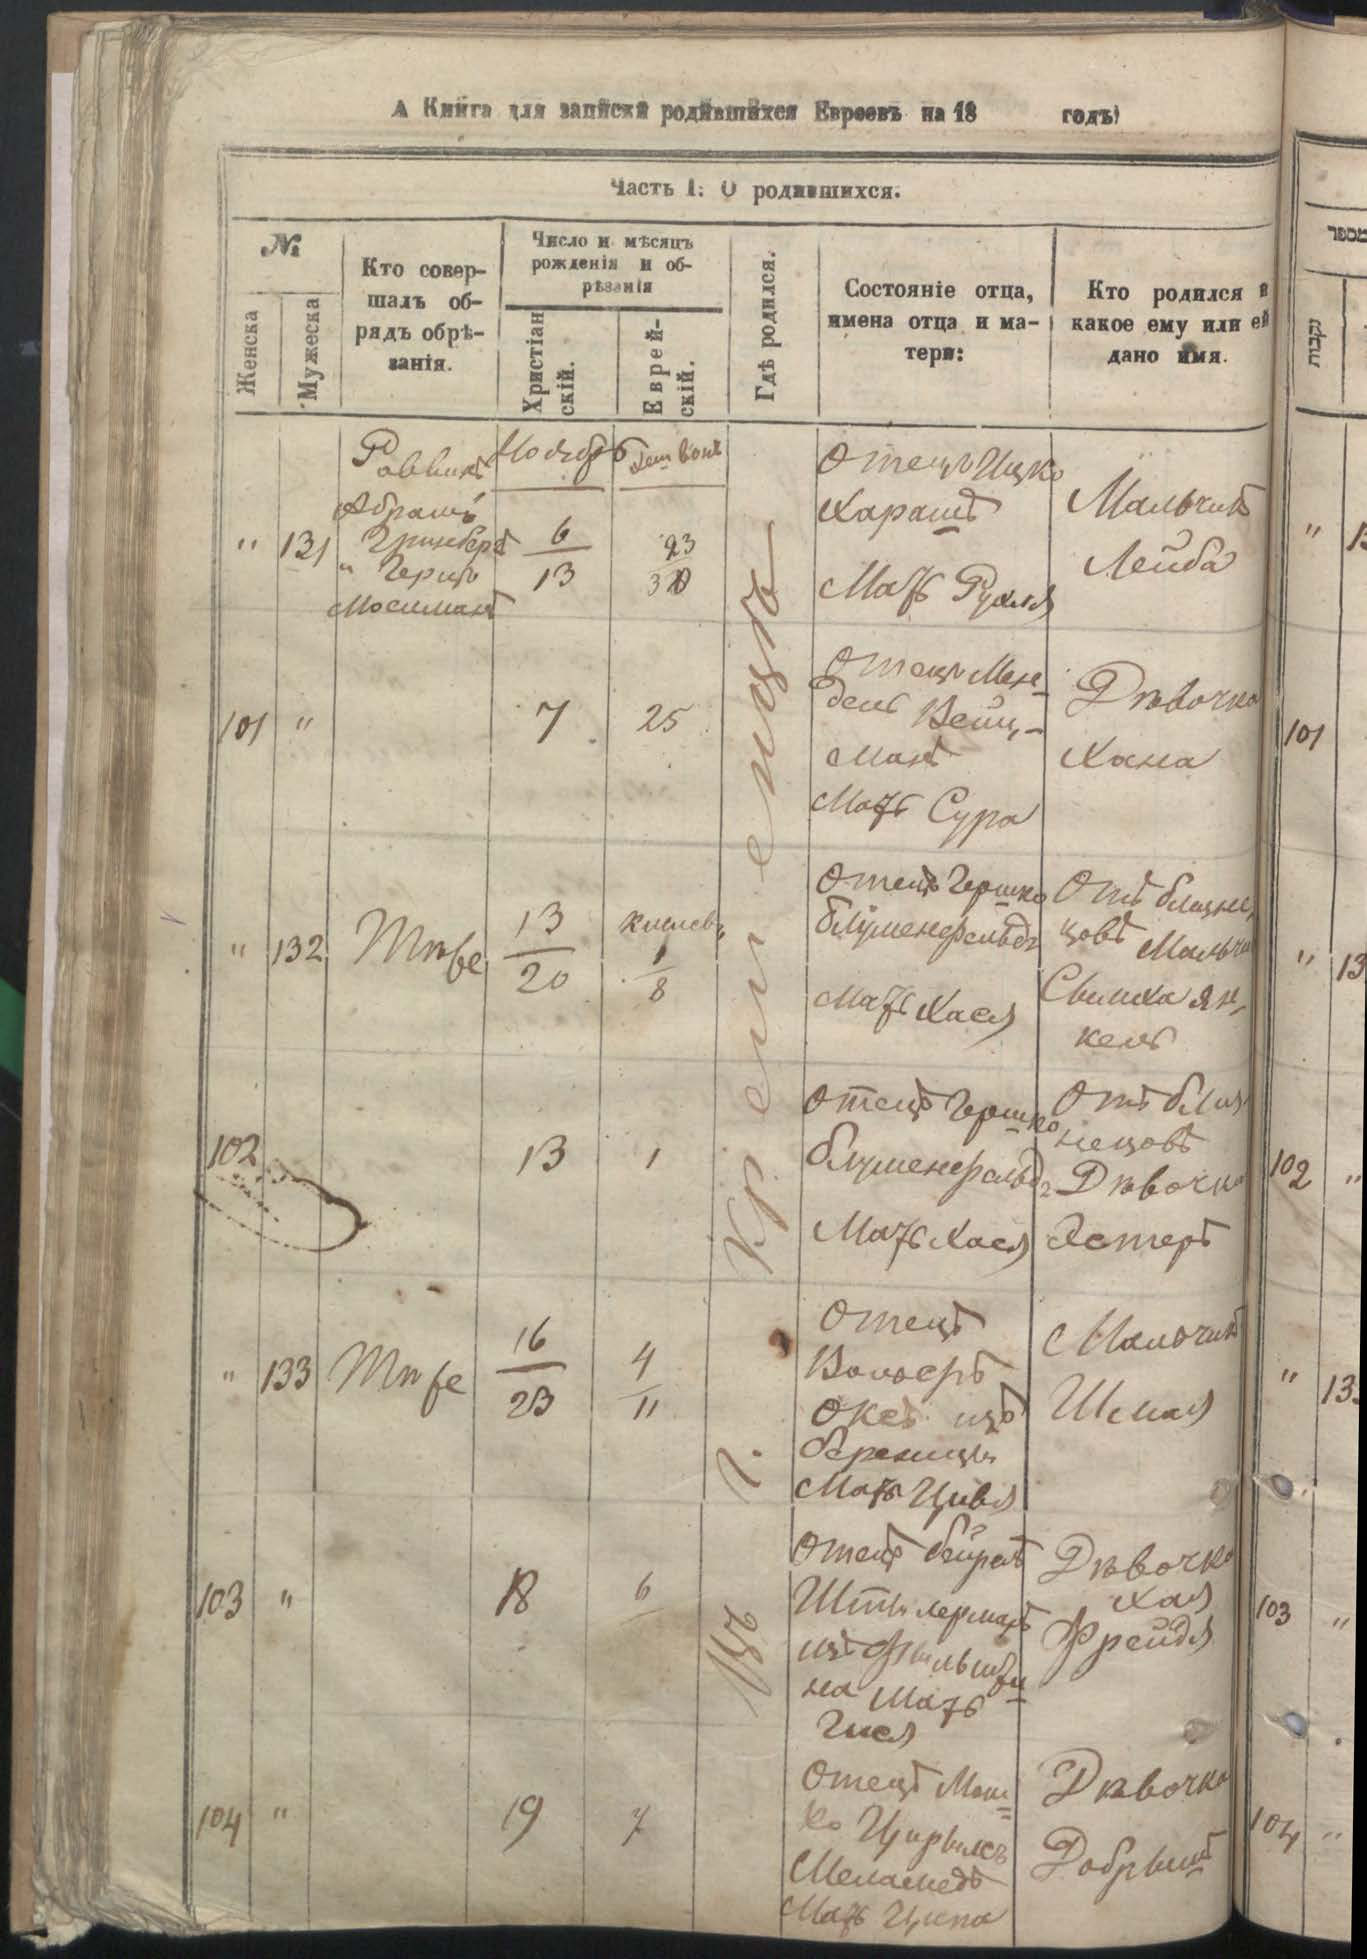 А Книга для записки родившихся Евреевъ на 18 годъ)
Часть I: О родившихся.
№
Женска
Мужеска
Кто совер-
шалъ об-
рядъ обрѣ-
занія.
Число и мѣсяцъ
рожденія и об-
рѣзанія
Христіан
скій.
Еврей-
скій.
Гдѣ родился.
Состояніе отца,
имена отца и ма-
тери:
Кто родился и
какое ему или ей
дано имя.
מספר
נקבות
Въ г. Кременицѣ
" 131
Раввинъ
Абрамъ
Гринбергъ
" Герцъ
Ноябрь
6
13
Хешвонъ
23
30
Отецъ Ицко
Харашъ
Мать Рухля
Мальчикъ
Лейба
101 "
7
25
Отецъ Мен-
дель Вейц-
манъ
Мать Сура
Дѣвочка
Хана
101
" 132
Тѣже
13
20
Кислевъ
1
8
Отецъ Гершко
Блуменфельдъ
Мать Хася
Отъ близне-
цовъ Мальчи
Симха Ян-
кель
102
13
1
Отецъ Гершко
Блуменфельдъ
Мать Хася
Отъ близ
нецовъ
Дѣвочка
Эстеръ
102 "
" 133
Тѣже
16
23
4
11
Отецъ
Вольфъ
Оксъ изъ
Бережицъ
Мать Цивя
Мальчикъ
Шмая
103 "
18
6
Отецъ Бейрель
Мать
Гися
Дѣвочка
Хая
Фрейдя
103 "
104 "
19
7
Отецъ Мош
ко
Меламедъ
Мать Ципа
Дѣвочка
Добрышъ
104 "